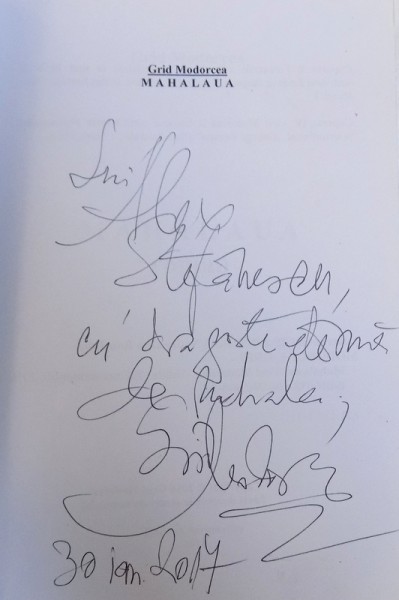 Grid Modorcea
MAHALAUA
Lui
Alex
Ștefănescu,
cu dragoste eternă
de mahala,
Grid Modorcea
30 ian. 2017